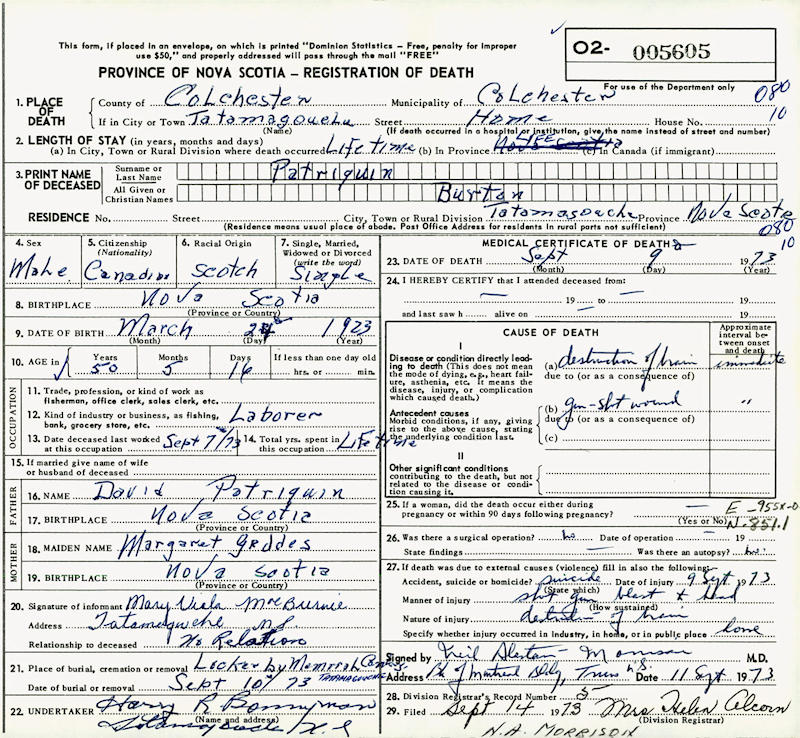 This form, if placed in an envelope, on which is printed "Dominion Statistics – Free, penalty for improper
use $50," and properly addressed will pass through the mail "FREE"
O2- 005605
PROVINCE OF NOVA SCOTIA – REGISTRATION OF DEATH
For use of the Department only
080
10
1. PLACE OF DEATH
County of Colchester Municipality of Colchester
If in City or Town Tatamagouche Street Home House No.
(Name) (If death occurred in a hospital or institution, give the name instead of street and number)
2. LENGTH OF STAY (in years, months and days)
(a) In City, Town or Rural Division where death occurred Lifetime (b) In Province LIFE Nova Scotia (c) In Canada (if immigrant)
3. PRINT NAME OF DECEASED
Surname or Last Name Patriquin
All Given or Christian Names Burton
RESIDENCE No. Street City, Town or Rural Division Tatamagouche Province Nova Scotia
(Residence means usual place of abode. Post Office Address for residents in rural parts not sufficient)
080
10
4. Sex Male
5. Citizenship (Nationality) Canadian
6. Racial Origin Scotch
7. Single, Married, Widowed or Divorced (write the word) Single
8. BIRTHPLACE Nova Scotia
(Province or Country)
9. DATE OF BIRTH March 24 1923
(Month) (Day) (Year)
10. AGE in Years 50 Months 5 Days 16 If less than one day old
hrs. or min.
OCCUPATION
11. Trade, profession, or kind of work as
fisherman, office clerk, sales clerk, etc.
12. Kind of industry or business, as fishing,
bank, grocery store, etc. Laborer
13. Date deceased last worked at this occupation Sept 7/73 14. Total yrs. spent in this occupation Lifetime
15. If married give name of wife
or husband of deceased
FATHER
16. NAME David Patriquin
17. BIRTHPLACE Nova Scotia
(Province or Country)
MOTHER
18. MAIDEN NAME Margaret Geddes
19. BIRTHPLACE Nova Scotia
(Province or Country)
20. Signature of informant Mary Viola
Address Tatamagouche N.S.
Relationship to deceased No Relation
21. Place of burial, cremation or removal Lockerby Memorial
TATAMAGOUCHE
Date of burial or removal Sept 10/73
22. UNDERTAKER Harry R Bonnyman
(Name and address)
Tatamagouche N.S
MEDICAL CERTIFICATE OF DEATH
23. DATE OF DEATH Sept 9 1973
(Month) (Day) (Year)
24. I HEREBY CERTIFY that I attended deceased from:
— 19 to — 19
and last saw h — alive on — 19
CAUSE OF DEATH
Approximate interval between onset and death
I
Disease or condition directly leading to death (This does not mean the mode of dying, e.g., heart failure, asthenia, etc. It means the disease, injury, or complication which caused death.)
(a) destruction of brain immediate
due to (or as a consequence of)
Antecedent causes
Morbid conditions, if any, giving rise to the above cause, stating the underlying condition last.
(b) gun-shot wound "
due to (or as a consequence of)
(c)
II
Other significant conditions
contributing to the death, but not related to the disease or condition causing it.
25. If a woman, did the death occur either during
pregnancy or within 90 days following pregnancy? —
(Yes or No)
N-851.1
26. Was there a surgical operation? no Date of operation — 19
State findings — Was there an autopsy? no
27. If death was due to external causes (violence) fill in also the following:
Accident, suicide or homicide? suicide Date of injury 9 Sept 1973
(State which)
Manner of injury shot gun blast to head
(How sustained)
Nature of injury destruction of brain
Specify whether injury occurred in industry, in home, or in public place home
Signed by Neil Morrison M.D.
Address Truro N.S. Date 11 Sept 1973
28. Division Registrar's Record Number 5
29. Filed Sept 14 1973 Mrs Helen Alcorn
(Division Registrar)
N.A. MORRISON